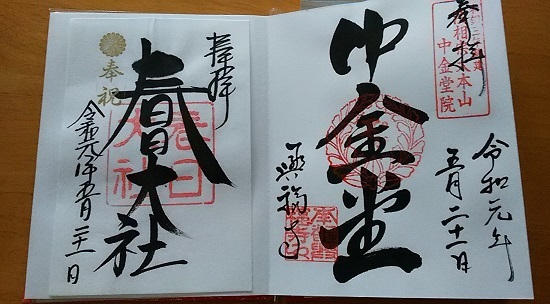 奉拝
中金堂
興福寺
令和元年
五月二十一日
中金堂院
奉拝
春日大社
奉祝
令和元年五月二十一日
春日大社